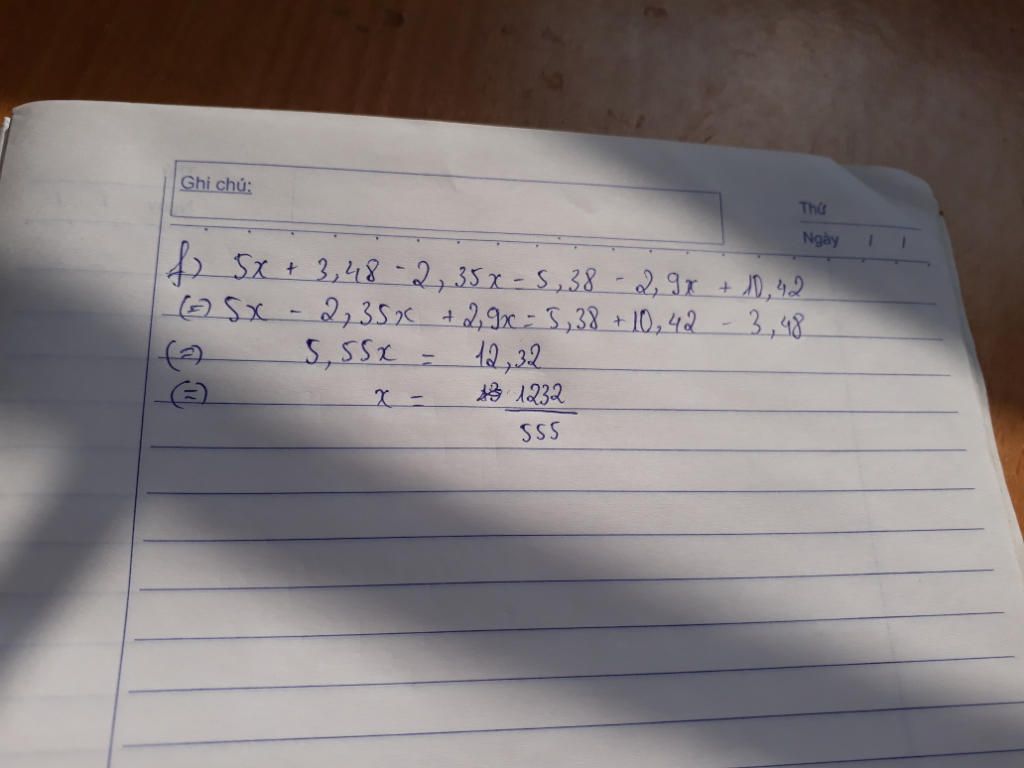 Ghi chú:
Thứ
Ngày / /
f) 5x + 3,48 - 2,35x = 5,38 - 2,9x + 10,42
(=) 5x - 2,35x + 2,9x = 5,38 + 10,42 - 3,48
(=) 5,55x = 12,32
(=) x = 1232
555